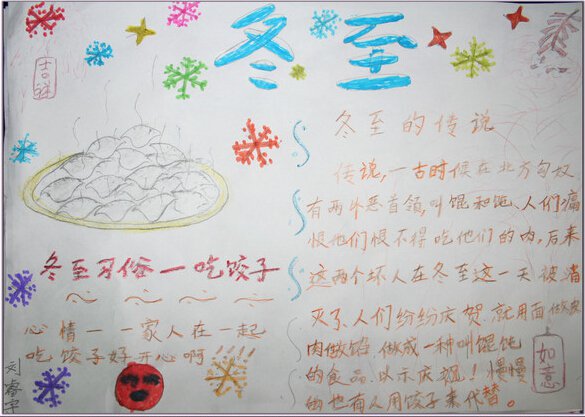 冬至
吉祥
冬至的传说
传说,一古时候在北方匈奴
有两个恶首领,叫馄和饨、人们痛
恨他们恨不得吃他们的肉,后来
这两个坏人在冬至这一天被消
灭了、人们纷纷庆贺.就用面做皮
肉做馅.做成一种叫馄饨
的食品.以示庆祝!慢慢
的也有人用饺子来代替。
如意
冬至习俗一吃饺子
心情一一家人在一起
吃饺子好开心啊!!!
刘睿宇